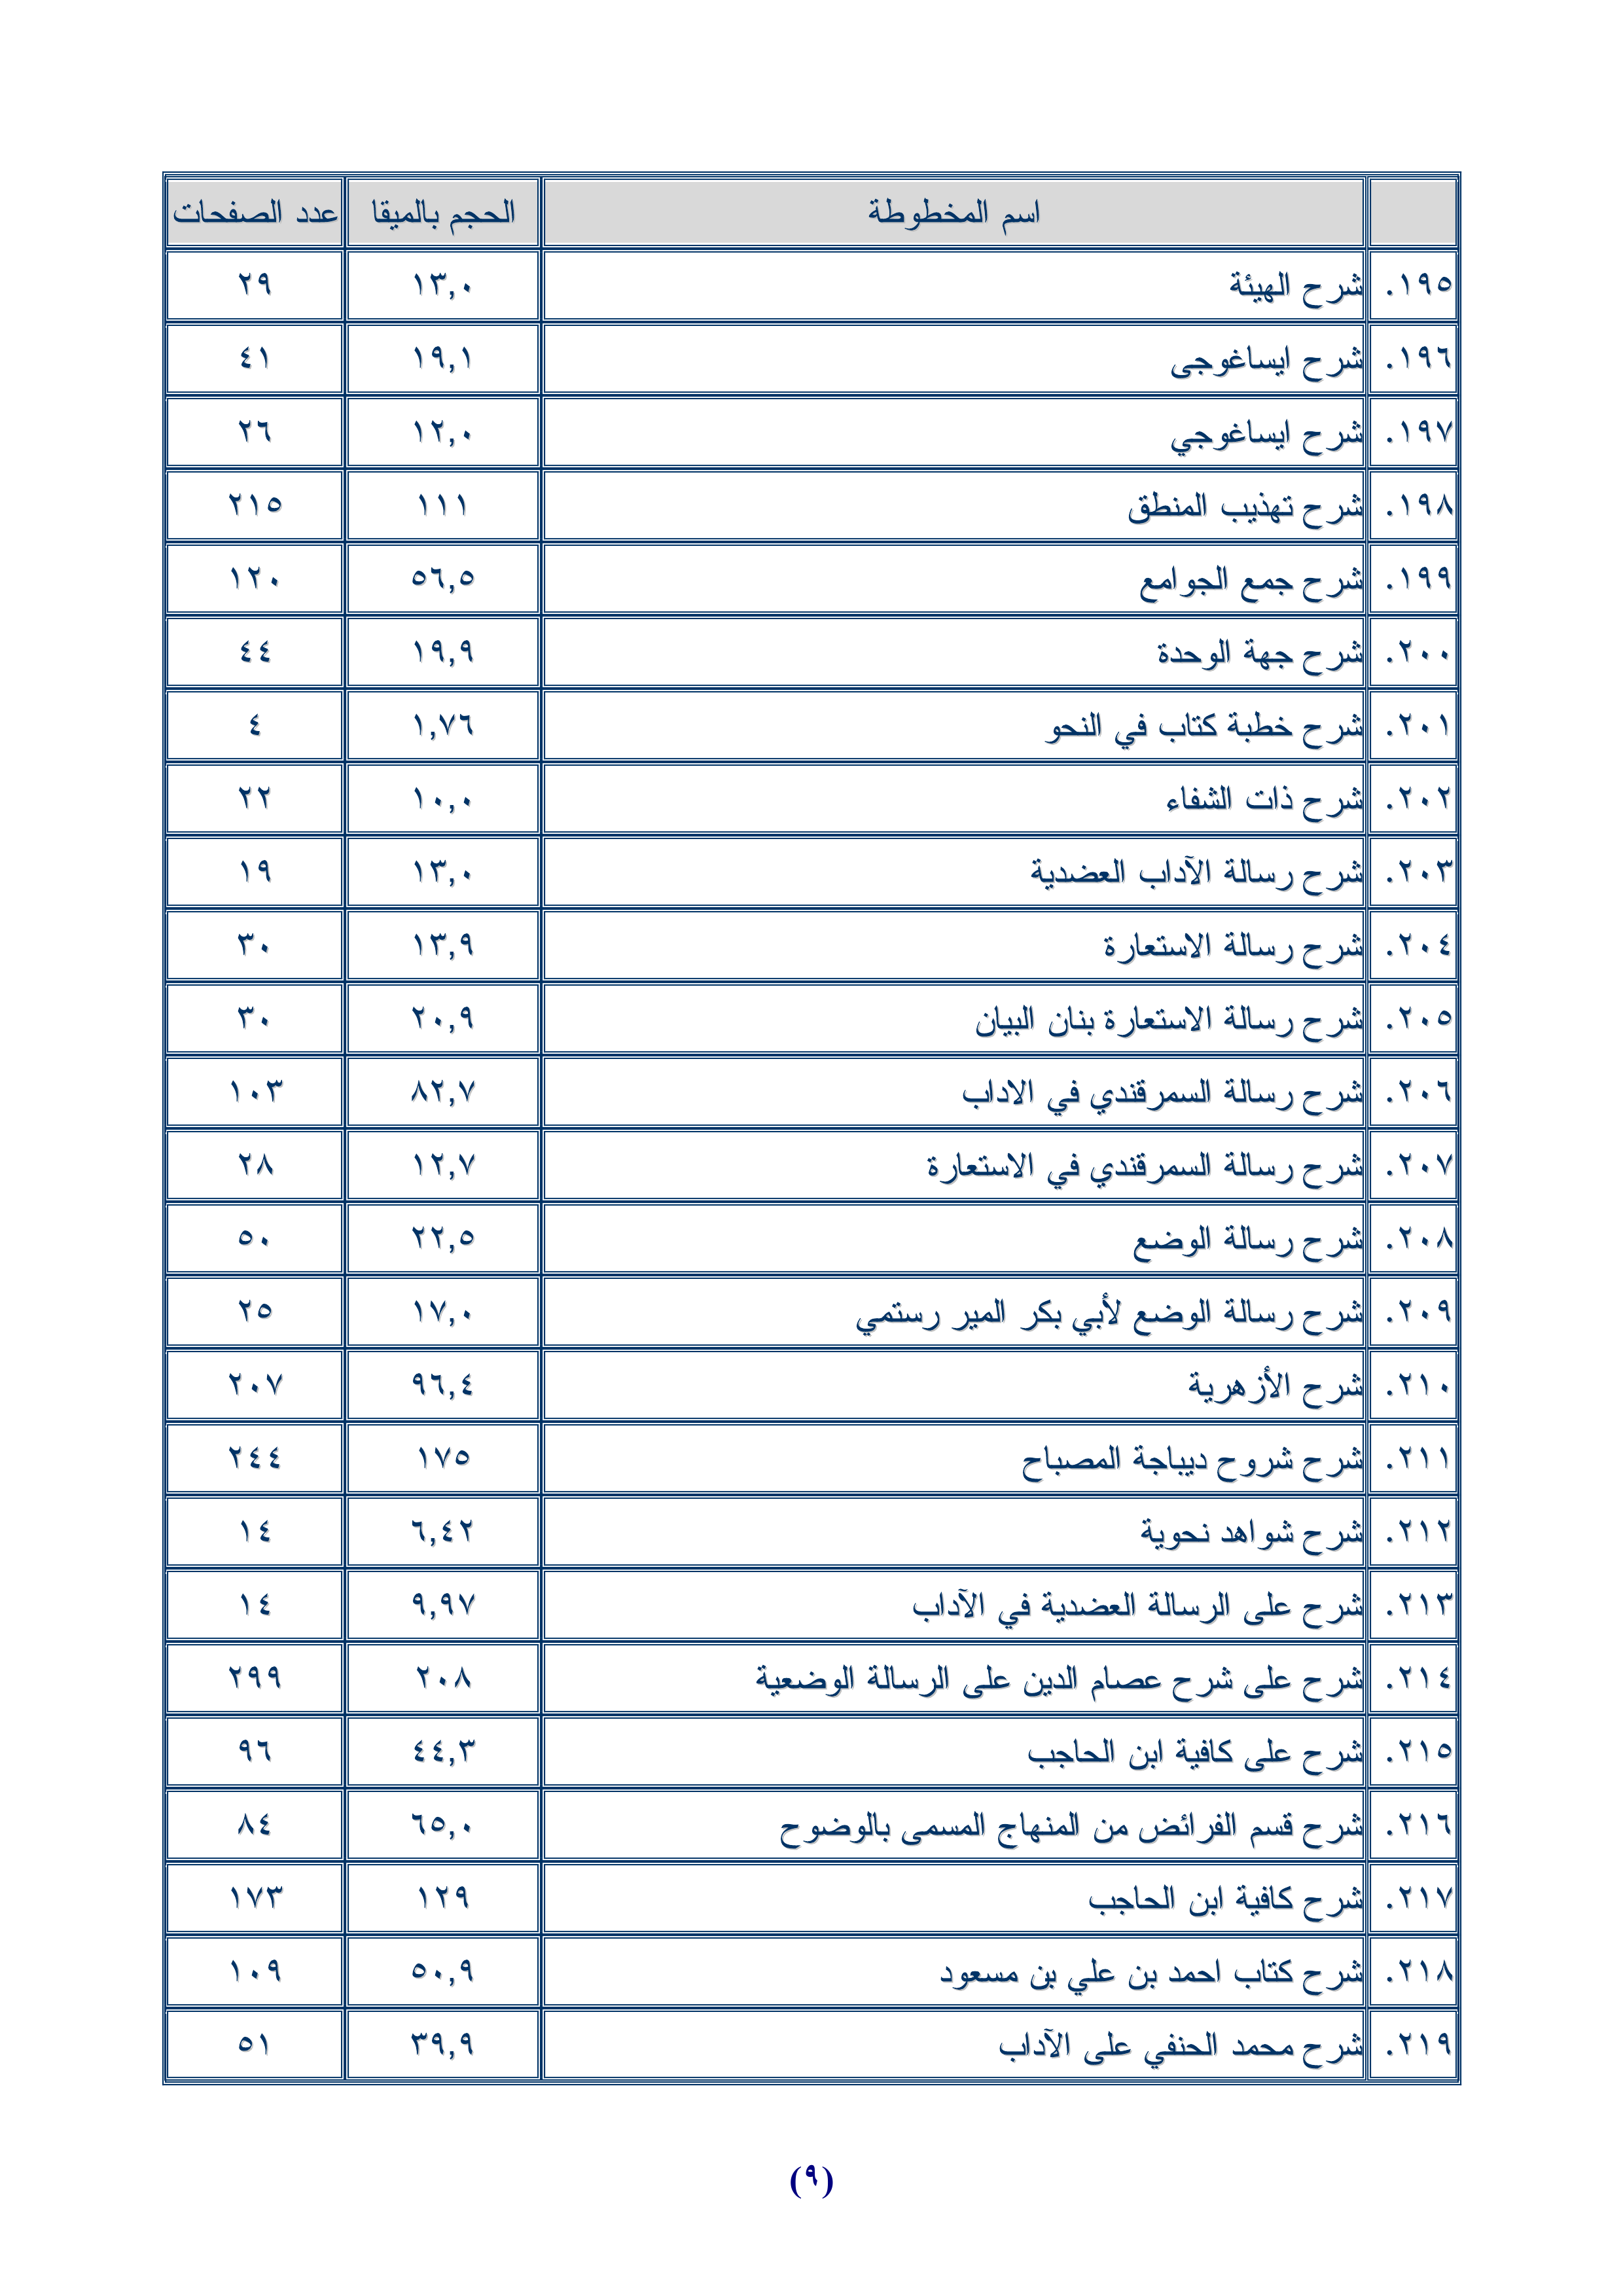 اسم المخطوطة الحجم بالميقا عدد الصفحات
١٩٥. شرح الهيئة ١٣,٠ ٢٩
١٩٦. شرح ايساغوجى ١٩,١ ٤١
١٩٧. شرح ايساغوجي ١٢,٠ ٢٦
١٩٨. شرح تهذيب المنطق ١١١ ٢١٥
١٩٩. شرح جمع الجوامع ٥٦,٥ ١٢٠
٢٠٠. شرح جهة الوحدة ١٩,٩ ٤٤
٢٠١. شرح خطبة كتاب في النحو ١,٧٦ ٤
٢٠٢. شرح ذات الشفاء ١٠,٠ ٢٢
٢٠٣. شرح رسالة الآداب العضدية ١٣,٠ ١٩
٢٠٤. شرح رسالة الاستعارة ١٣,٩ ٣٠
٢٠٥. شرح رسالة الاستعارة بنان البيان ٢٠,٩ ٣٠
٢٠٦. شرح رسالة السمرقندي في الاداب ٨٢,٧ ١٠٣
٢٠٧. شرح رسالة السمرقندي في الاستعارة ١٢,٧ ٢٨
٢٠٨. شرح رسالة الوضع ٢٢,٥ ٥٠
٢٠٩. شرح رسالة الوضع لأبي بكر المير رستمي ١٧,٠ ٢٥
٢١٠. شرح الأزهرية ٩٦,٤ ٢٠٧
٢١١. شرح شروح ديباجة المصباح ١٧٥ ٢٤٤
٢١٢. شرح شواهد نحوية ٦,٤٢ ١٤
٢١٣. شرح على الرسالة العضدية في الآداب ٩,٩٧ ١٤
٢١٤. شرح على شرح عصام الدين على الرسالة الوضعية ٢٠٨ ٢٩٩
٢١٥. شرح على كافية ابن الحاجب ٤٤,٣ ٩٦
٢١٦. شرح قسم الفرائض من المنهاج المسمى بالوضوح ٦٥,٠ ٨٤
٢١٧. شرح كافية ابن الحاجب ١٢٩ ١٧٣
٢١٨. شرح كتاب احمد بن علي بن مسعود ٥٠,٩ ١٠٩
٢١٩. شرح محمد الحنفي على الآداب ٣٩,٩ ٥١
(٩)